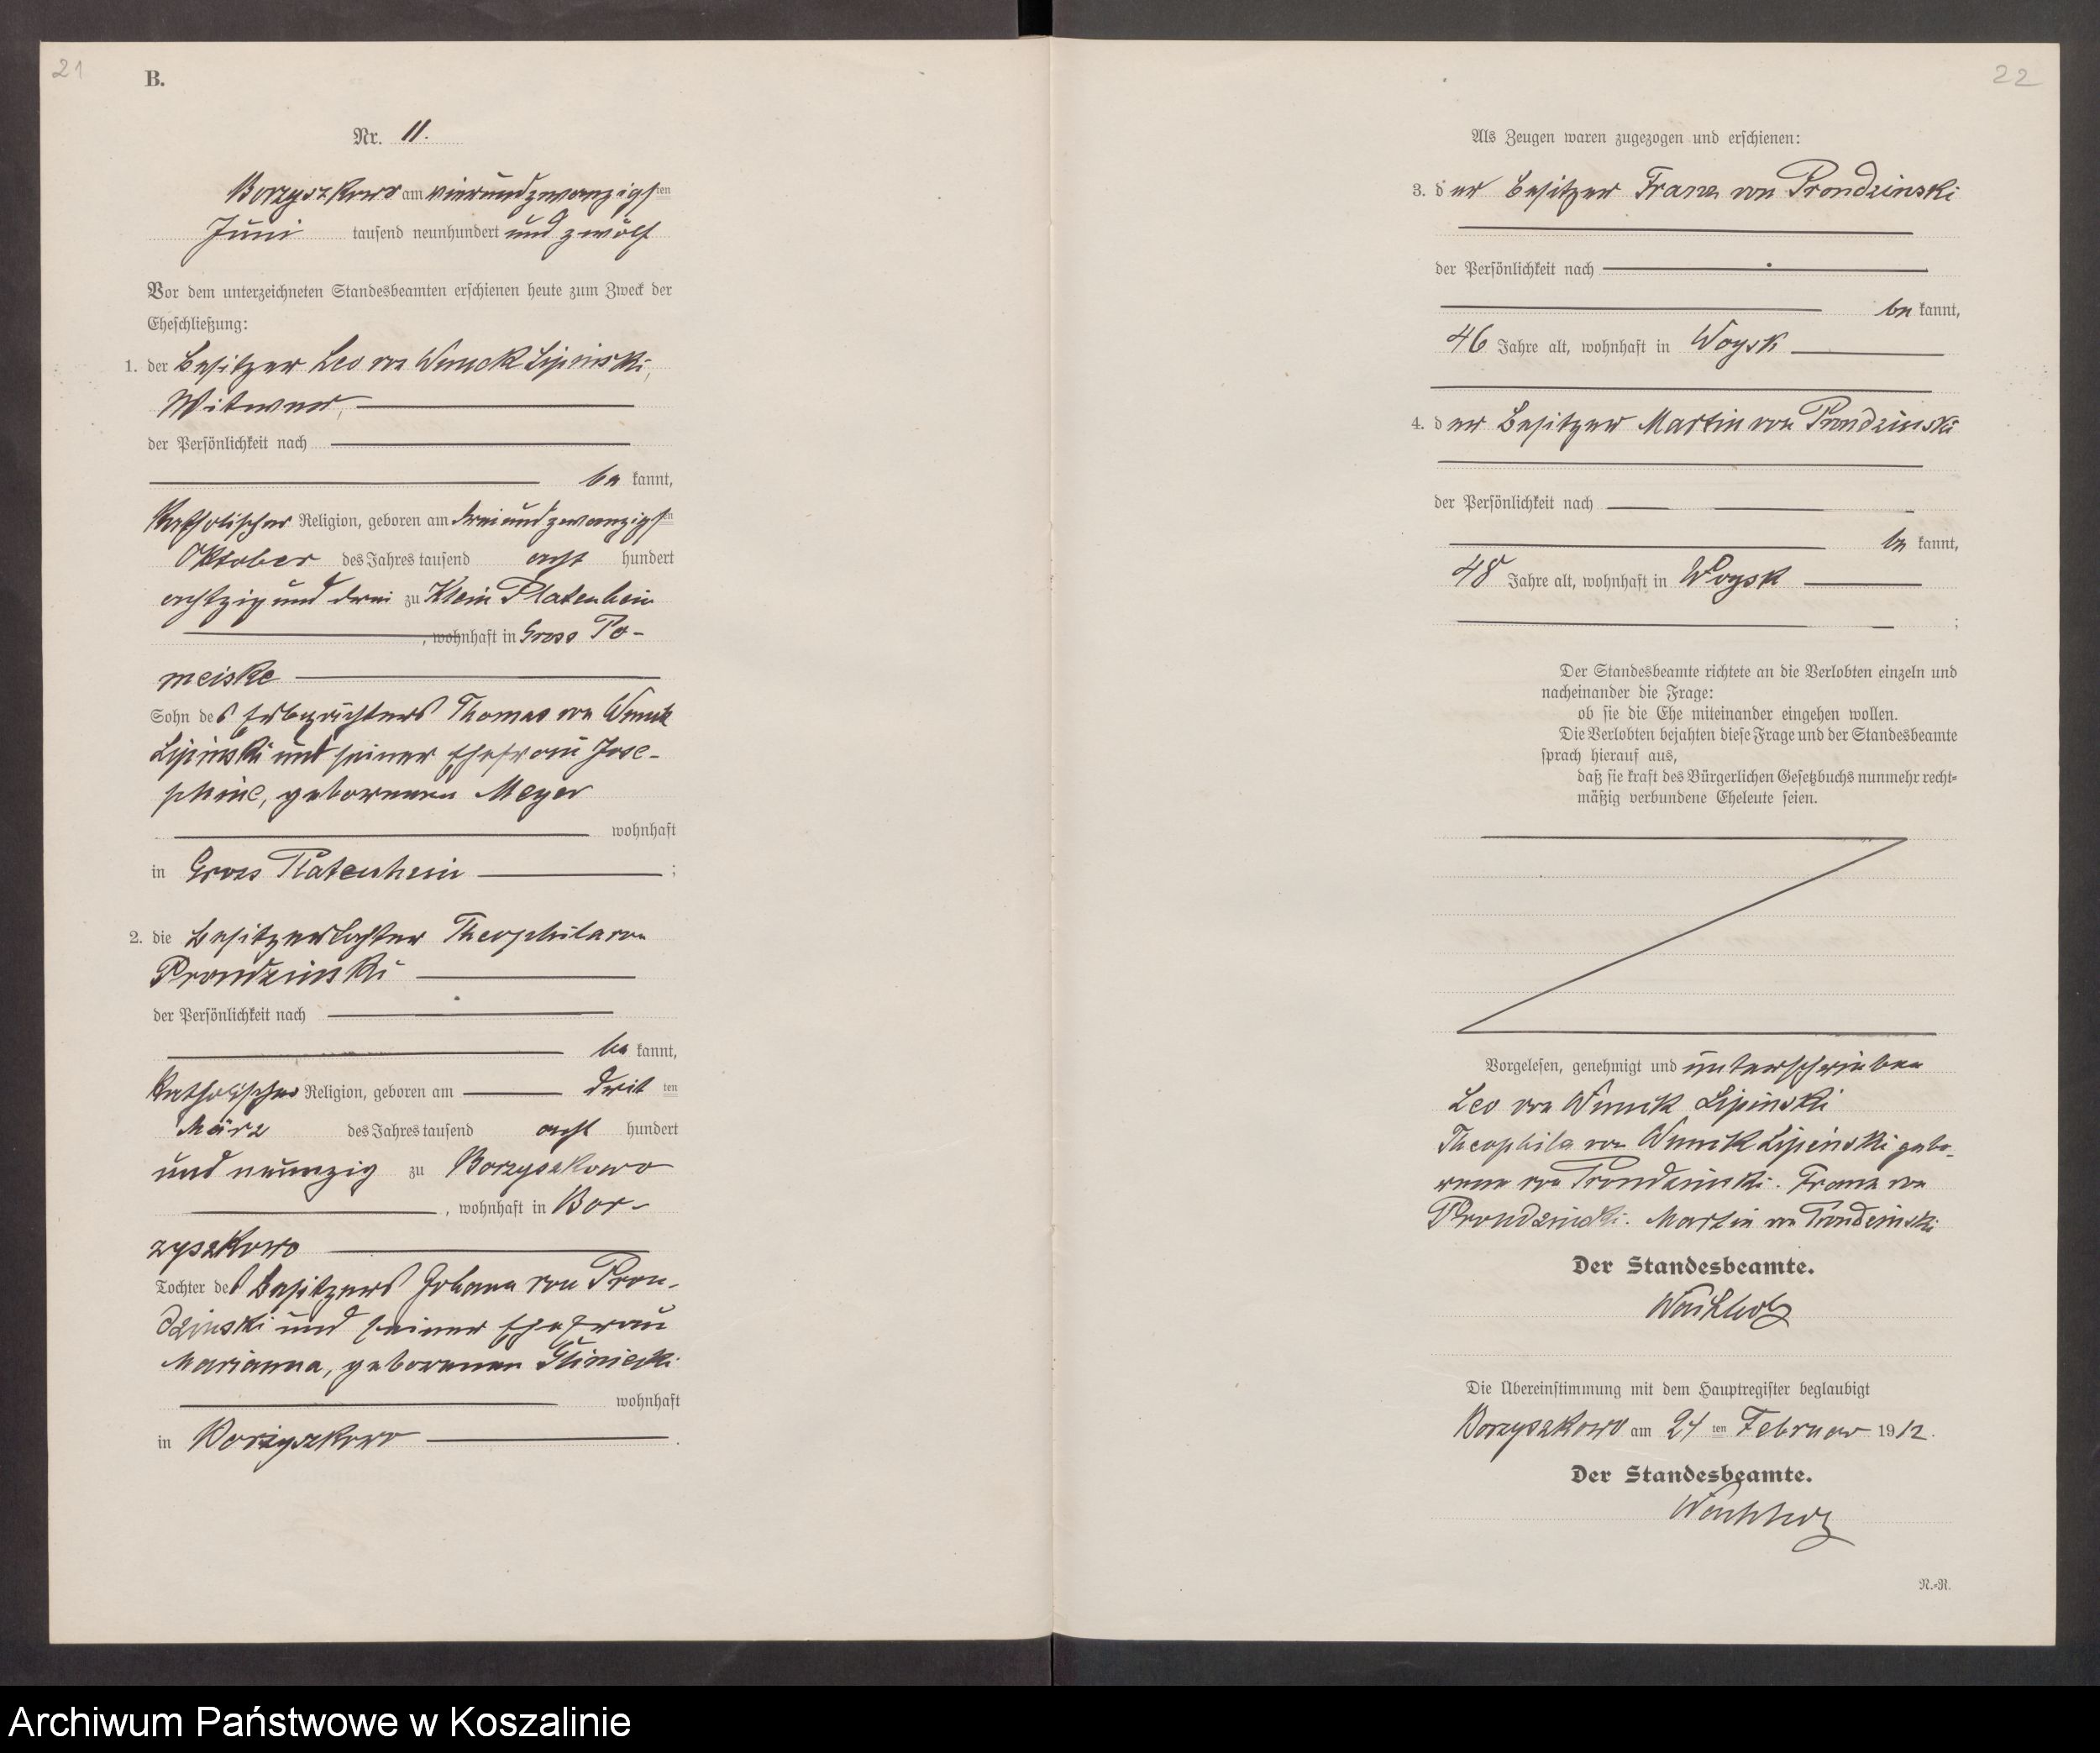 21
B.
Nr. 11.
Borzyszkowo am vierundzwanzigsten
Juni tausend neunhundert und zwölf
Vor dem unterzeichneten Standesbeamten erschienen heute zum Zweck der
Eheschließung:
1. der Besitzer Leo von Wnuck Lipinski,
Witwer,
der Persönlichkeit nach
bekannt,
katholischer Religion, geboren am dreiundzwanzigsten
Oktober des Jahres tausend acht hundert
achtzig und drei zu Klein Platenhein
, wohnhaft in Gross Po-
meiske
Sohn des Thomas von Wnuck
Lipinski und seiner Ehefrau Jose-
phine, geborenen Meyer
wohnhaft
in Gross Platenhein ;
2. die Besitzertochter Theophila von
Prondzinski
der Persönlichkeit nach
bekannt,
katholischer Religion, geboren am dritten
März des Jahres tausend acht hundert
und neunzig zu Borzyszkowo
, wohnhaft in Bor-
zyszkowo
Tochter des Besitzers Johann von Pron-
dzinski und seiner Ehefrau
Marianna, geborenen
wohnhaft
in Borzyszkowo .
22
Als Zeugen waren zugezogen und erschienen:
3. der Besitzer Franz von Prondzinski
der Persönlichkeit nach
bekannt,
46 Jahre alt, wohnhaft in Woysk
4. der Besitzer Martin von Prondzinski
der Persönlichkeit nach
bekannt,
48 Jahre alt, wohnhaft in Woysk
;
Der Standesbeamte richtete an die Verlobten einzeln und
nacheinander die Frage:
ob sie die Ehe miteinander eingehen wollen.
Die Verlobten bejahten diese Frage und der Standesbeamte
sprach hierauf aus,
daß sie kraft des Bürgerlichen Gesetzbuchs nunmehr recht-
mäßig verbundene Eheleute seien.
Vorgelesen, genehmigt und unterschrieben
Leo von Wnuck Lipinski
Theophila von Wnuck Lipinski gebo-
rene von Prondzinski. Franz von
Prondzinski. Martin von Prondzinski
Der Standesbeamte.
Wachholz
Die Übereinstimmung mit dem Hauptregister beglaubigt
Borzyszkowo am 24 ten Februar 1912.
Der Standesbeamte.
Wachholz
N.-R.
Archiwum Państwowe w Koszalinie